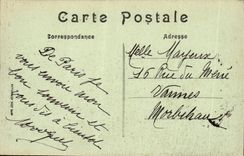 Carte Postale
Correspondance
Adresse
De Paris je
vous envoie mon
bon souvenir et
vous dis à
Melle Mayeux
15 Rue du Méné
Vannes
Morbihan